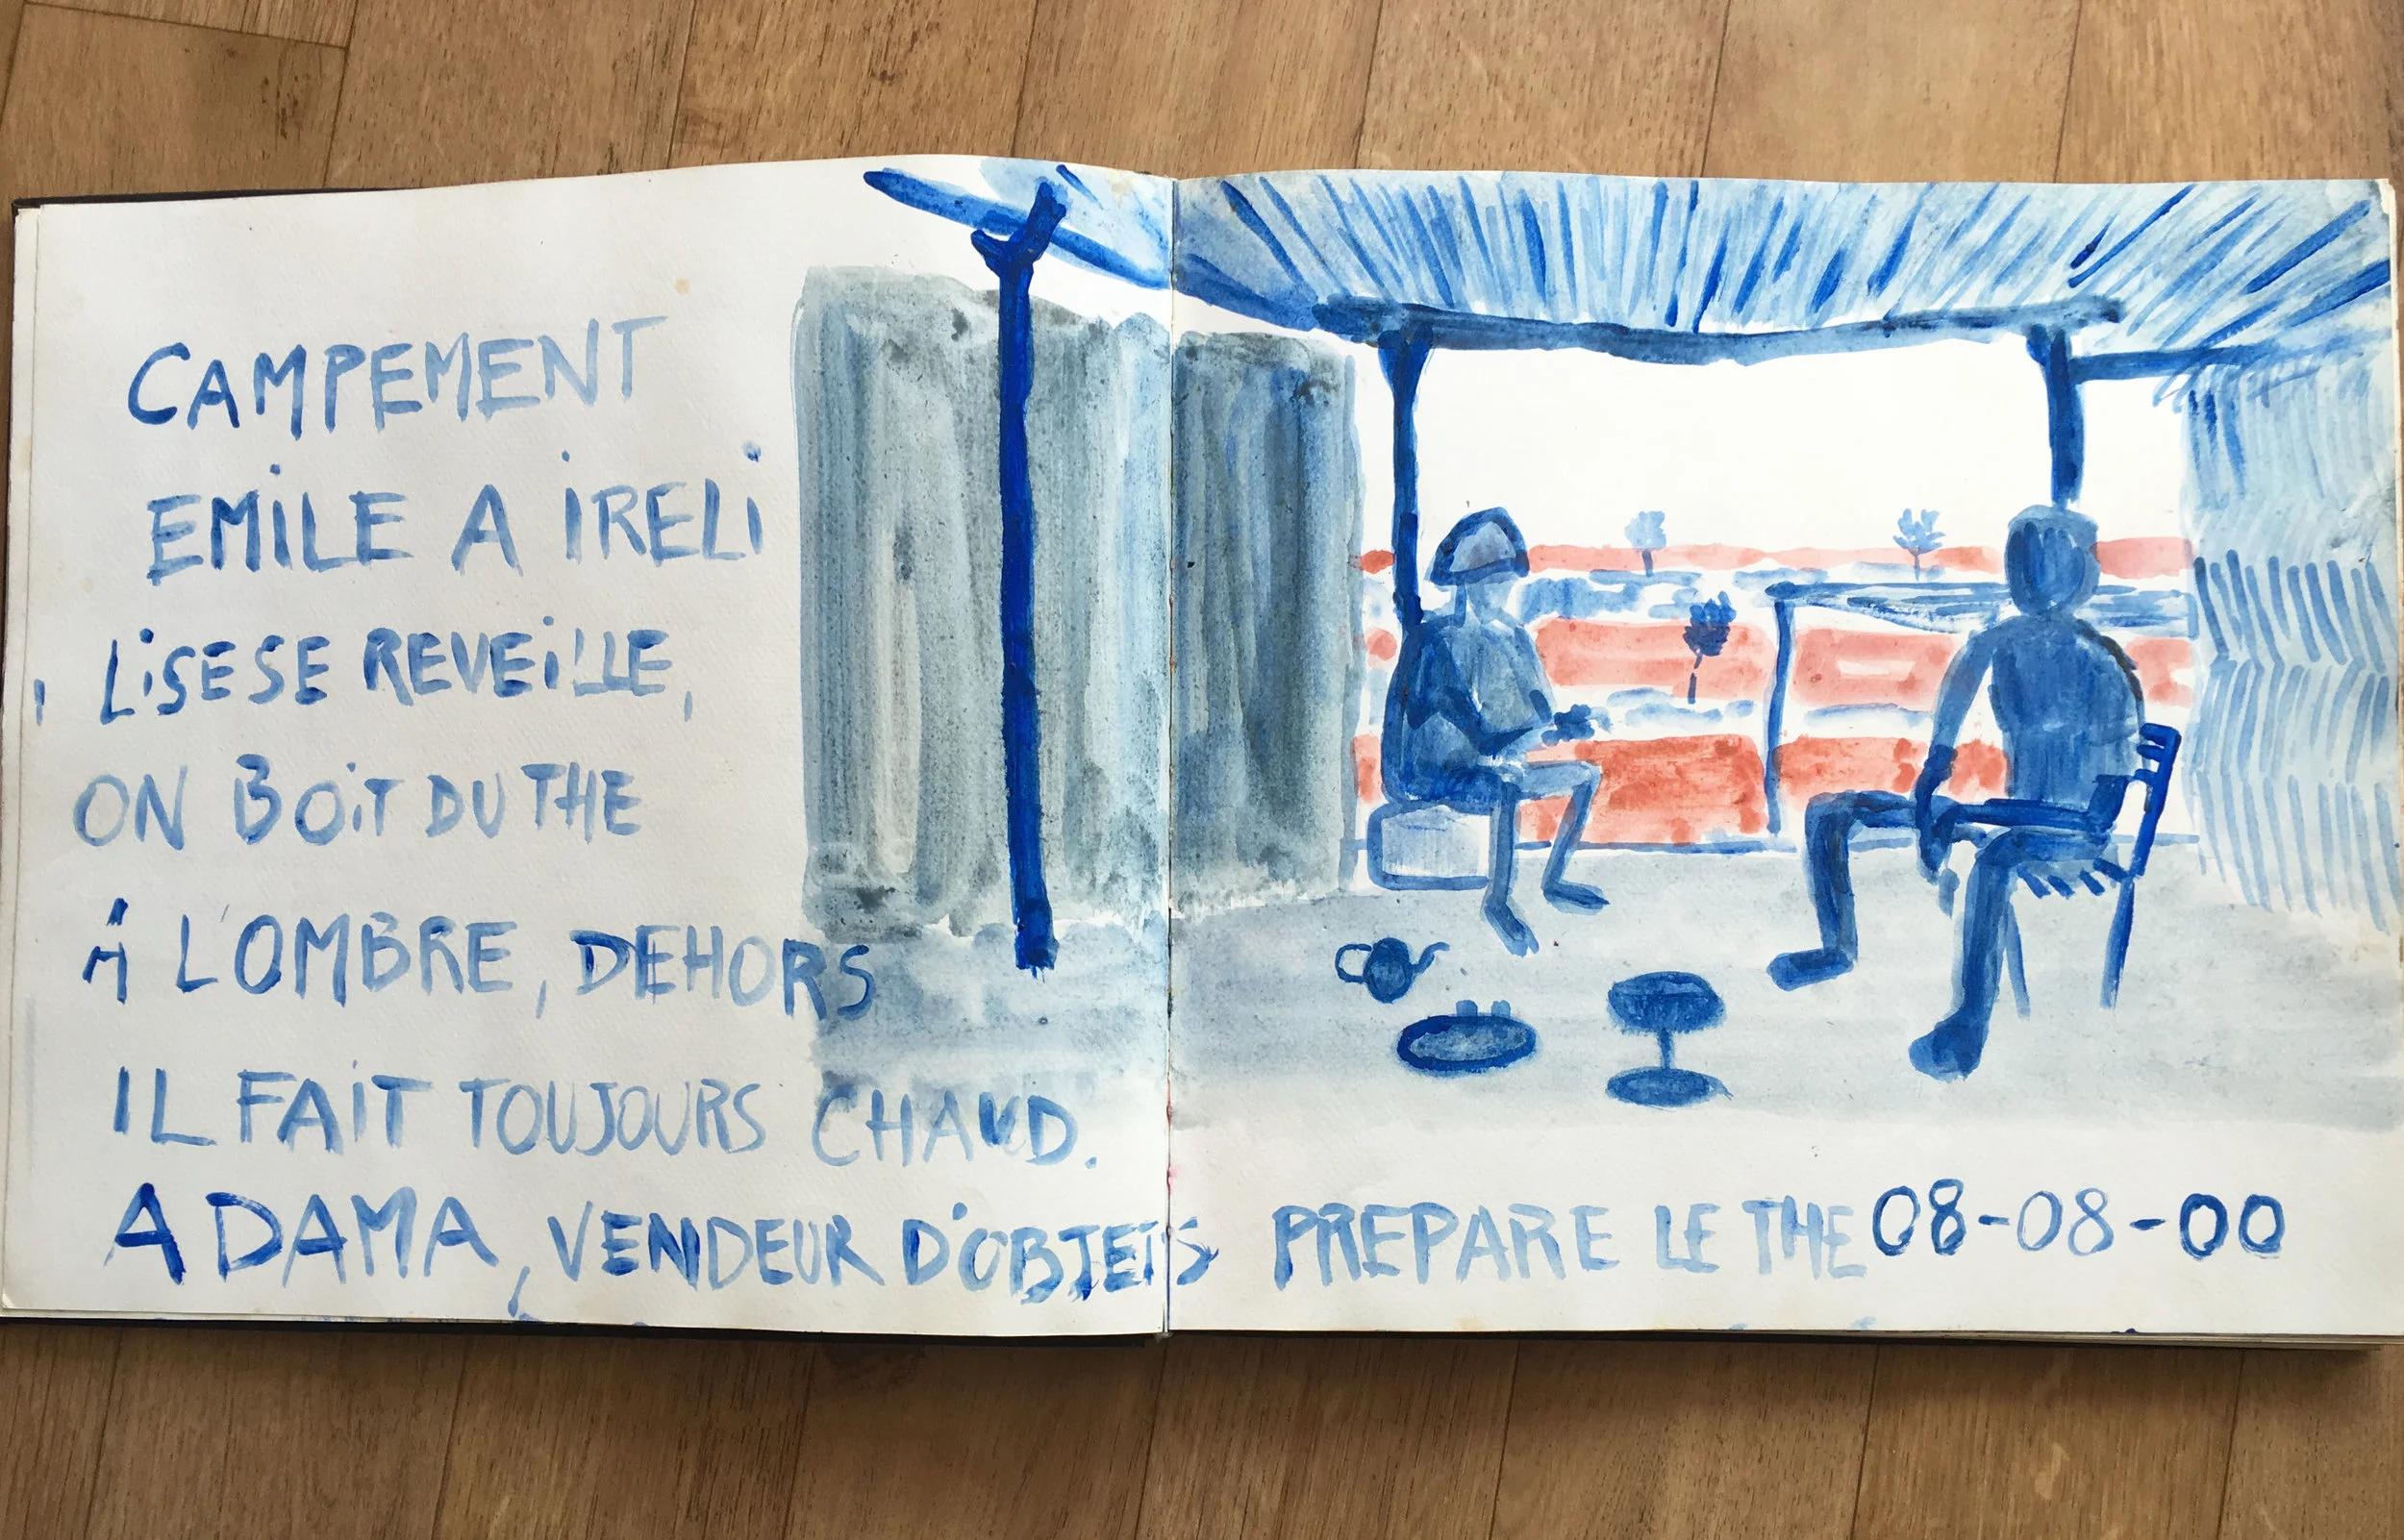 CAMPEMENT
EMILE A IRELI
LISE SE REVEILLE,
ON BOIT DU THE
À L'OMBRE, DEHORS
IL FAIT TOUJOURS CHAUD.
ADAMA, VENDEUR D'OBJETS PREPARE LE THE 08-08-00